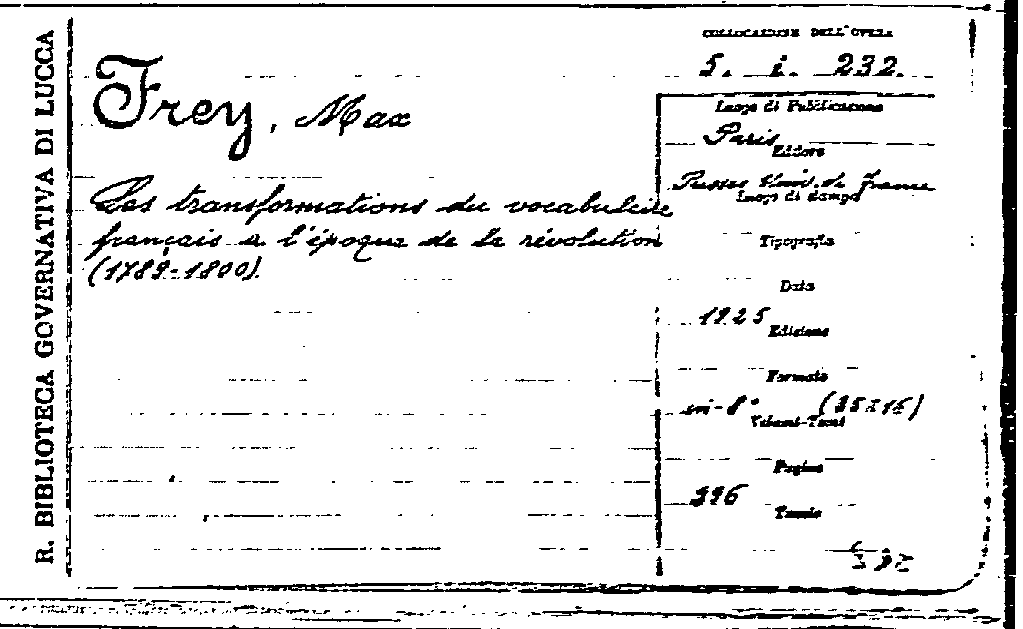 R. BIBLIOTECA GOVERNATIVA DI LUCCA
COLLOCAZIONE DELL'OPERA
5. i. 232.
Frey, Max
Luogo di Pubblicazione
Paris
Editore
Les transformations du vocabulaire
français a l'époque de la révolution
(1789-1800).
Presses Univ. de France
Luogo di stampa
Tipografia
Data
1925
Edizione
Formato
in-8° (25x16)
Volumi-Tomi
Pagine
Tavole